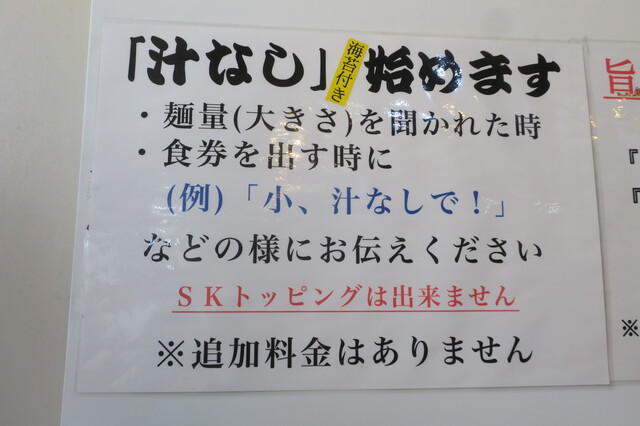 「汁なし」海苔付き 始めます
・麺量(大きさ)を聞かれた時
・食券を出す時に
(例)「小、汁なしで！」
などの様にお伝えください
ＳＫトッピングは出来ません
※追加料金はありません
旨
『
『
※